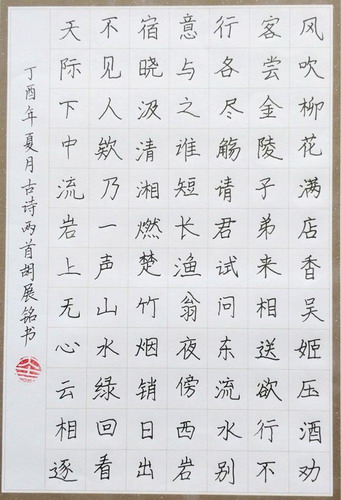 风吹柳花满店香吴姬压酒劝
客尝金陵子弟来相送欲行不
行各尽觞请君试问东流水别
意与之谁短长渔翁夜傍西岩
宿晓汲清湘燃楚竹烟销日出
不见人欸乃一声山水绿回看
天际下中流岩上无心云相逐
丁酉年夏月古诗两首胡展铭书